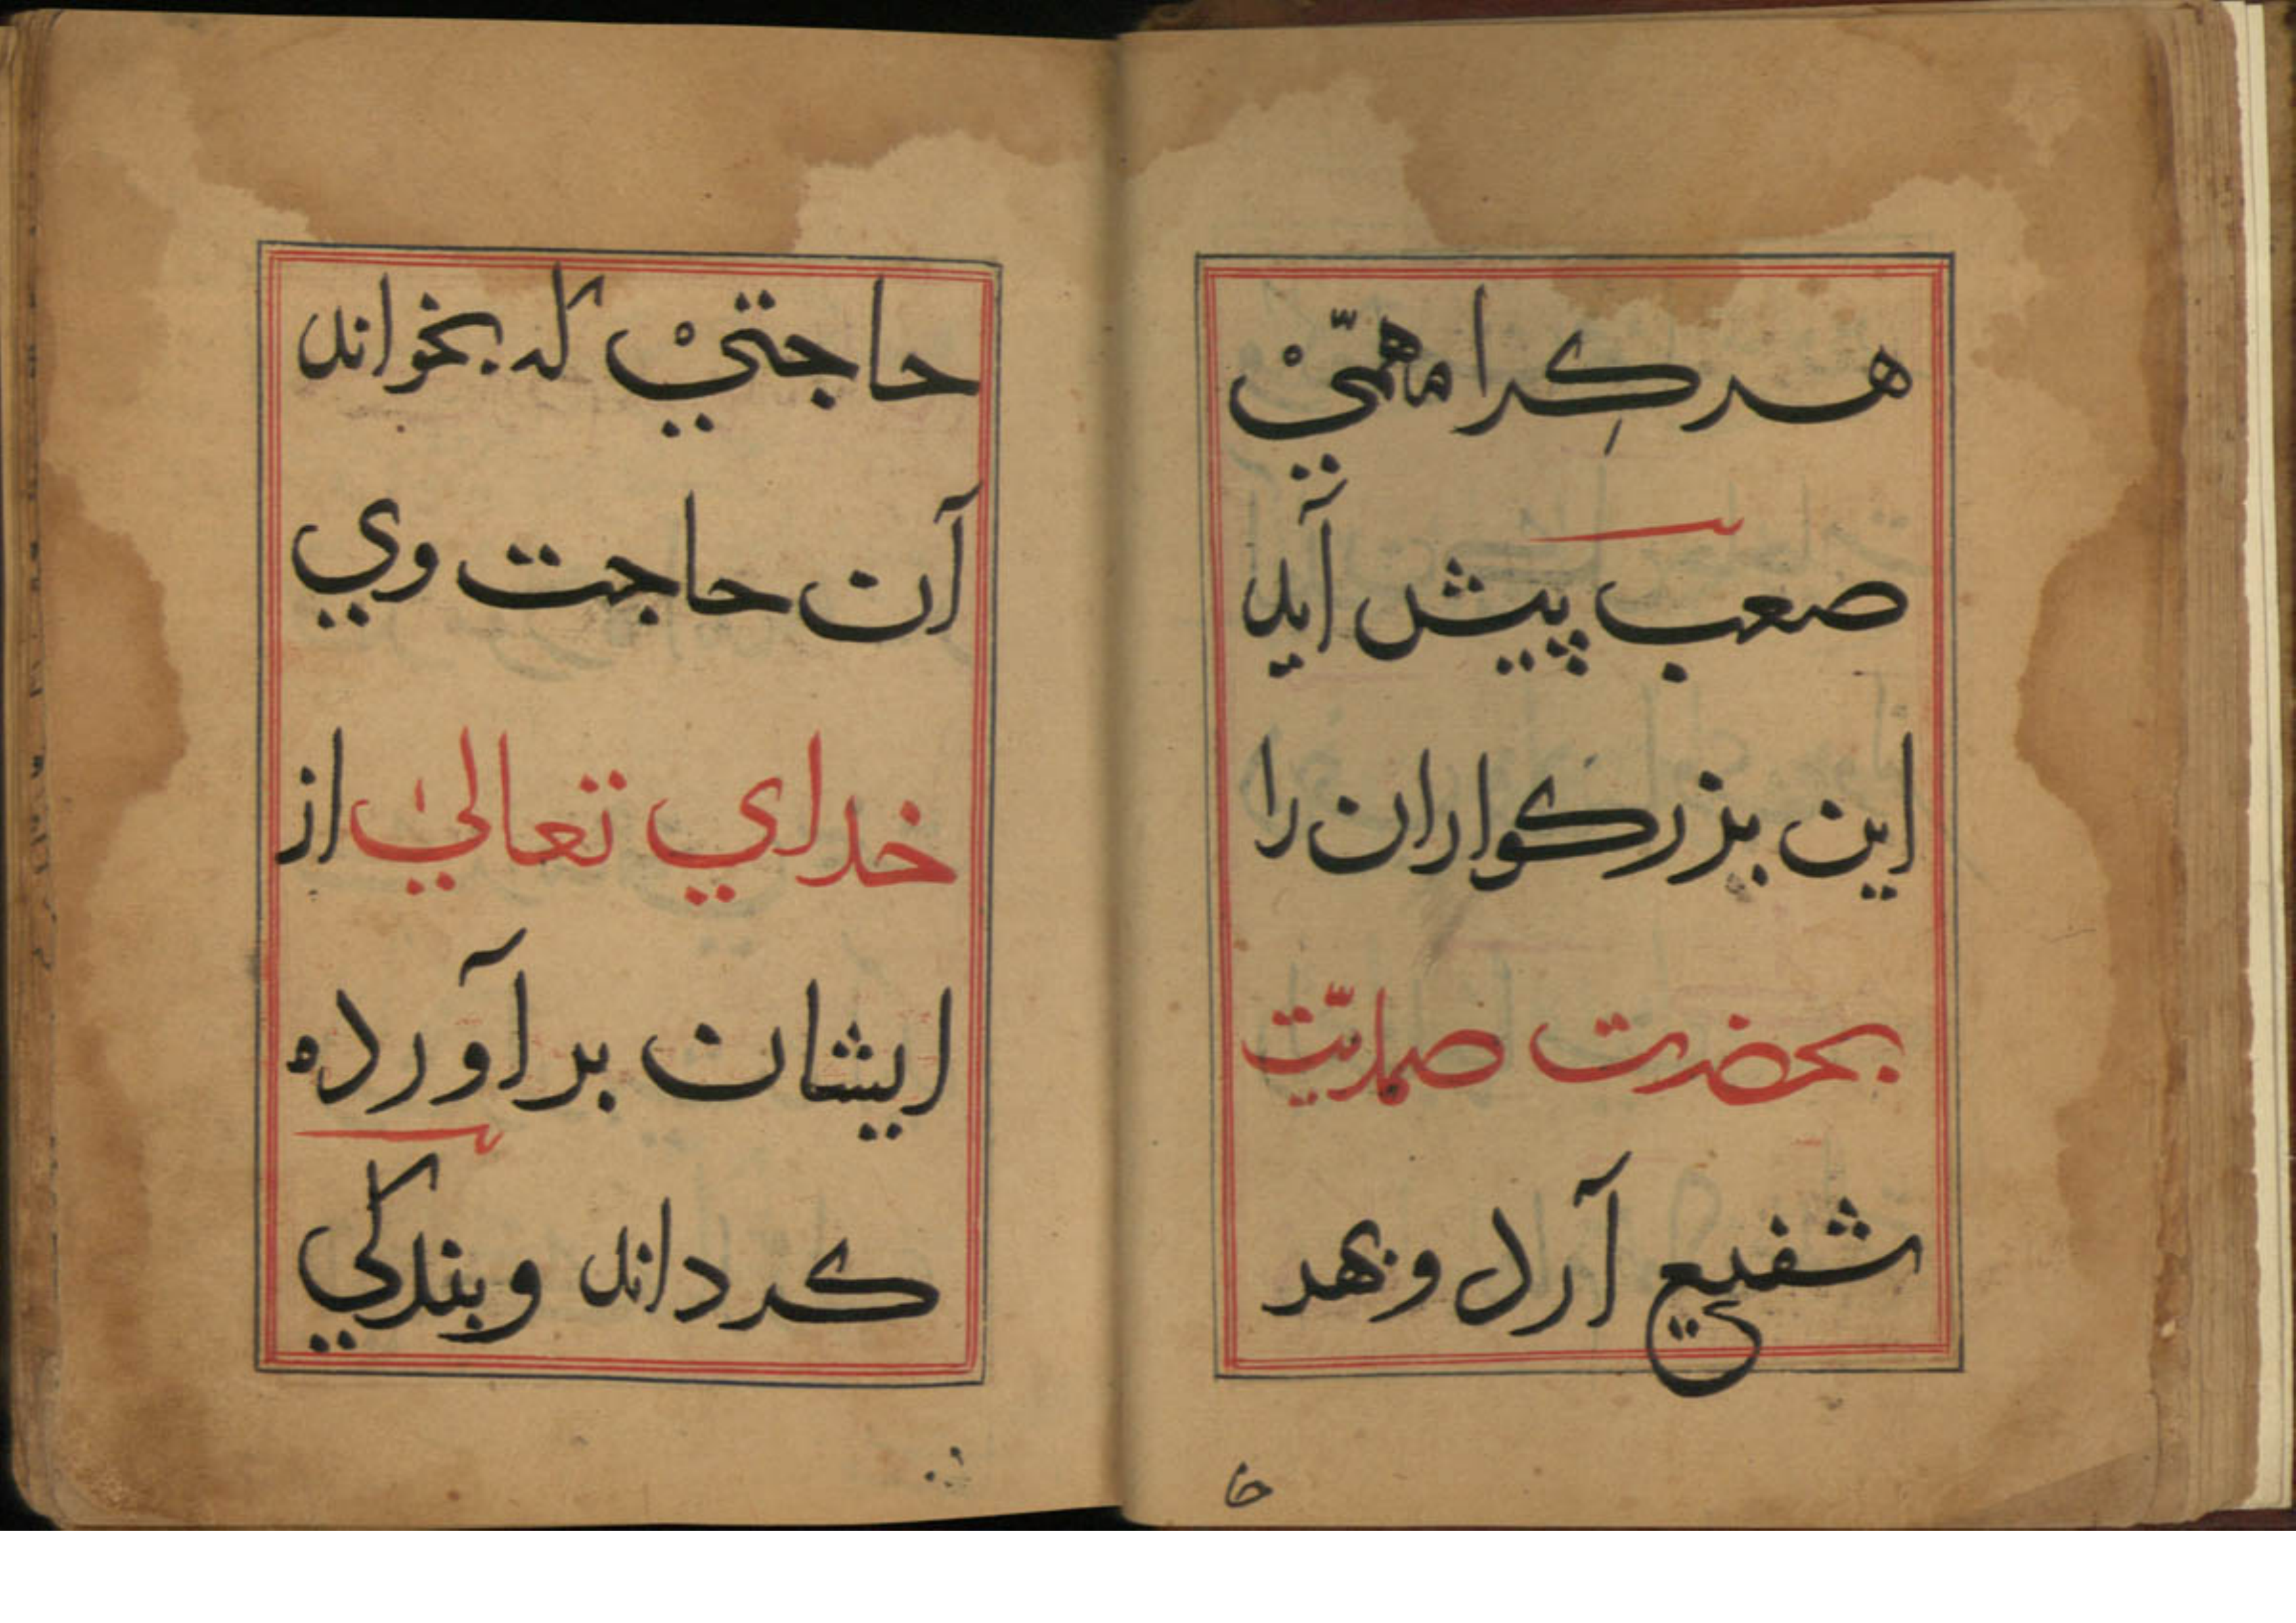 هر كِرا مهمّيْ
صعب پيش آيد
اين بزركواران را
بحضرت صمديّت
شفيع آرد و بهر
حا
حاجتيْ كه بخواند
آن حاجت وي
خداي تعالىٰ از
ايشان برآورده
كرداند و بندكي